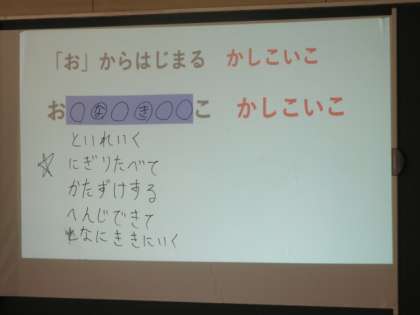 「お」からはじまる かしこいこ
お○な○き○○こ かしこいこ
といれいく
にぎりたべて
かたずけする
へんじできて
となにききにいく